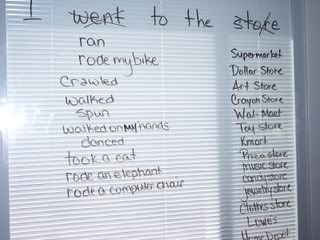 I went to the store
ran
rode my bike
Crawled
walked
spun
walked on my hands
danced
took a cat
rode an elephant
rode a computer chair
Supermarket
Dollar Store
Art Store
Crayon Store
Wal-Mart
Toy store
Kmart
Pizza store
music store
candy store
jewelry store
Clothes store
Lowe's
Home Depot